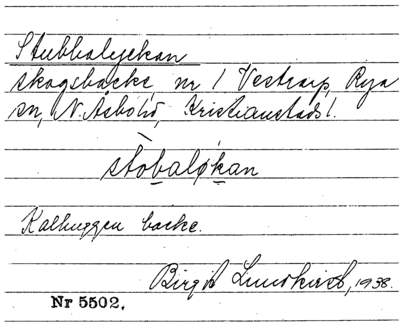 Stubbalyckan
skogsbacke, nr 1 Vestrarp, Rya
sn, N. Åsbo hd, Kristianstads l.
stobaløkan
Kalhuggen backe.
Birgit 1938.
Nr 5502.